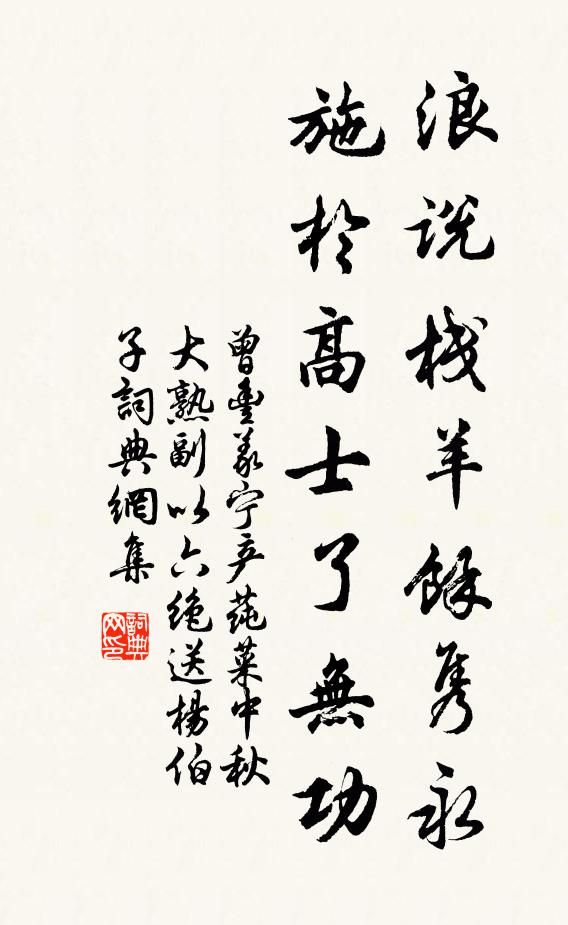 浪説棧羊餘雋永
施於高士了無功
曾豐義宁产莼菜中秋
大熟副以六绝送楊伯
子詞典網集
詞典
网印